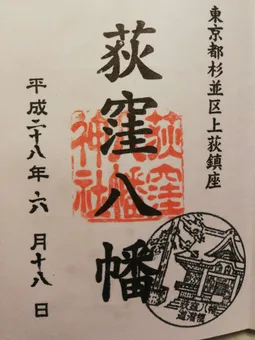 東京都杉並区上荻鎮座
荻窪八幡
荻窪
八幡
神社
平成二十八年六月十八日
荻窪八幡